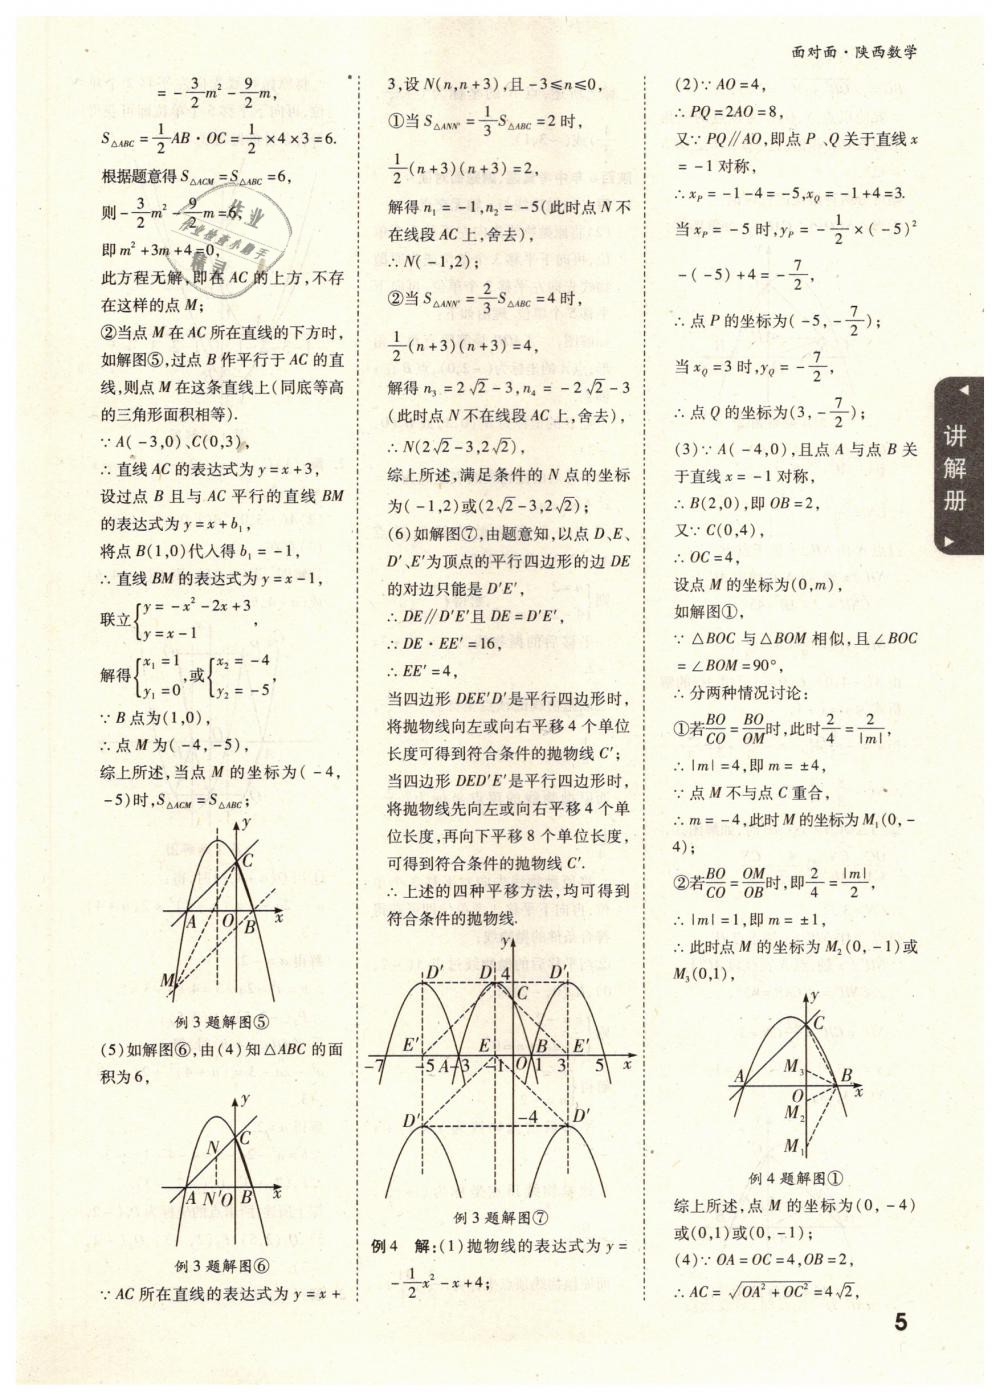 面对面·陕西数学
= -3/2m² - 9/2m,
S△ABC = 1/2AB·OC = 1/2×4×3=6.
根据题意得 S△ACM = S△ABC = 6,
则 -3/2m² - 9/2m = 6,
即 m² + 3m + 4 = 0,
此方程无解,即在 AC 的上方,不存
在这样的点 M;
②当点 M 在 AC 所在直线的下方时,
如解图⑤,过点 B 作平行于 AC 的直
线,则点 M 在这条直线上(同底等高
的三角形面积相等).
∵ A(-3,0)、C(0,3),
∴ 直线 AC 的表达式为 y = x + 3,
设过点 B 且与 AC 平行的直线 BM
的表达式为 y = x + b₁,
将点 B(1,0)代入得 b₁ = -1,
∴ 直线 BM 的表达式为 y = x - 1,
联立{y = -x² - 2x + 3
y = x - 1,
解得{x₁ = 1
y₁ = 0,或{x₂ = -4
y₂ = -5,
∵ B 点为(1,0),
∴ 点 M 为(-4,-5),
综上所述,当点 M 的坐标为(-4,
-5)时,S△ACM = S△ABC;
y
C
A O B x
M
例 3 题解图⑤
(5)如解图⑥,由(4)知△ABC 的面
积为 6,
y
N C
A N′ O B x
例 3 题解图⑥
∵ AC 所在直线的表达式为 y = x +
3,设 N(n,n+3),且 -3≤n≤0,
①当 S△ANN′ = 1/3S△ABC = 2 时,
1/2(n+3)(n+3) = 2,
解得 n₁ = -1,n₂ = -5(此时点 N 不
在线段 AC 上,舍去),
∴ N(-1,2);
②当 S△ANN′ = 2/3S△ABC = 4 时,
1/2(n+3)(n+3) = 4,
解得 n₃ = 2√2 - 3,n₄ = -2√2 - 3
(此时点 N 不在线段 AC 上,舍去),
∴ N(2√2-3,2√2),
综上所述,满足条件的 N 点的坐标
为(-1,2)或(2√2-3,2√2);
(6)如解图⑦,由题意知,以点 D、E、
D′、E′为顶点的平行四边形的边 DE
的对边只能是 D′E′,
∴ DE∥D′E′且 DE = D′E′,
∴ DE·EE′ = 16,
∴ EE′ = 4,
当四边形 DEE′D′是平行四边形时,
将抛物线向左或向右平移 4 个单位
长度可得到符合条件的抛物线 C′;
当四边形 DED′E′是平行四边形时,
将抛物线先向左或向右平移 4 个单
位长度,再向下平移 8 个单位长度,
可得到符合条件的抛物线 C′.
∴ 上述的四种平移方法,均可得到
符合条件的抛物线.
y
D′ D 4 D′
C
E′ E B E′
-7 -5 A -3 -1 O 1 3 5 x
D′ -4 D′
例 3 题解图⑦
例 4 解:(1)抛物线的表达式为 y =
-1/2x² - x + 4;
(2)∵ AO = 4,
∴ PQ = 2AO = 8,
又∵ PQ∥AO,即点 P、Q 关于直线 x
= -1 对称,
∴ xP = -1-4 = -5,xQ = -1+4 = 3.
当 xP = -5 时,yP = -1/2×(-5)²
-(-5)+4 = -7/2,
∴ 点 P 的坐标为(-5,-7/2);
当 xQ = 3 时,yQ = -7/2,
∴ 点 Q 的坐标为(3,-7/2);
(3)∵ A(-4,0),且点 A 与点 B 关
于直线 x = -1 对称,
∴ B(2,0),即 OB = 2,
又∵ C(0,4),
∴ OC = 4,
设点 M 的坐标为(0,m),
如解图①,
∵ △BOC 与△BOM 相似,且∠BOC
= ∠BOM = 90°,
∴ 分两种情况讨论:
①若BO/CO = BO/OM时,此时2/4 = 2/|m|,
∴ |m| = 4,即 m = ±4,
∵ 点 M 不与点 C 重合,
∴ m = -4,此时 M 的坐标为 M₁(0,-
4);
②若BO/CO = OM/OB时,即2/4 = |m|/2,
∴ |m| = 1,即 m = ±1,
∴ 此时点 M 的坐标为 M₂(0,-1)或
M₃(0,1),
y
C
M₃
A B
O x
M₂
M₁
例 4 题解图①
综上所述,点 M 的坐标为(0,-4)
或(0,1)或(0,-1);
(4)∵ OA = OC = 4,OB = 2,
∴ AC = √(OA² + OC²) = 4√2,
讲解册
5
作业
作业检查小助手
精灵